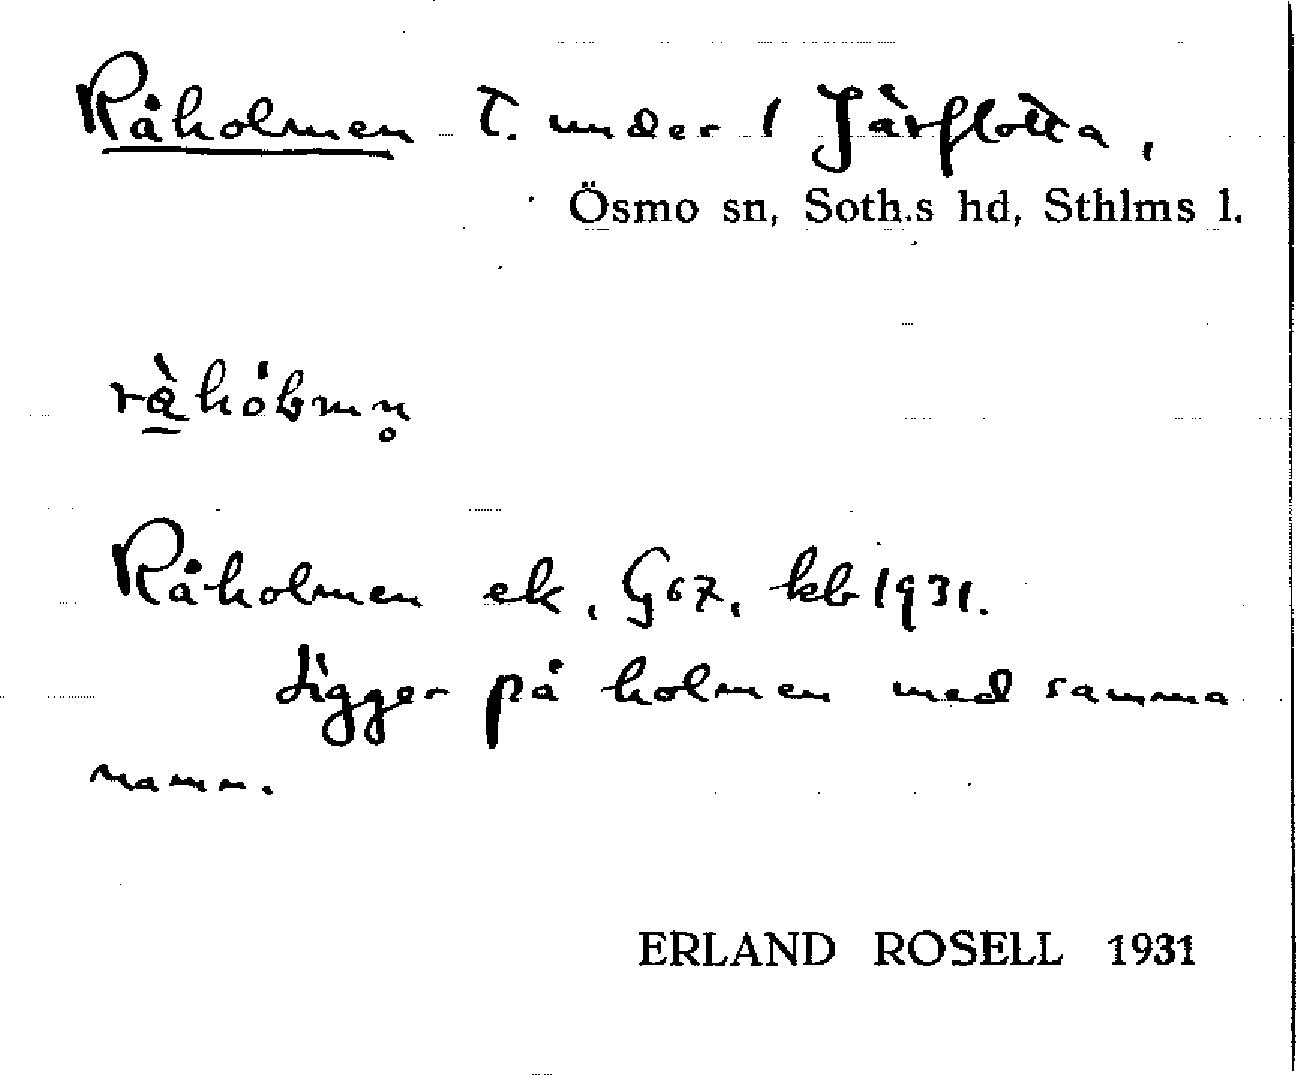 Råholmen T. under 1 Järflotta,
Ösmo sn, Soth.s hd, Sthlms l.
Råholmen ek, G67, kb 1931.
Ligger på holmen med samma
namn.
ERLAND ROSELL 1931